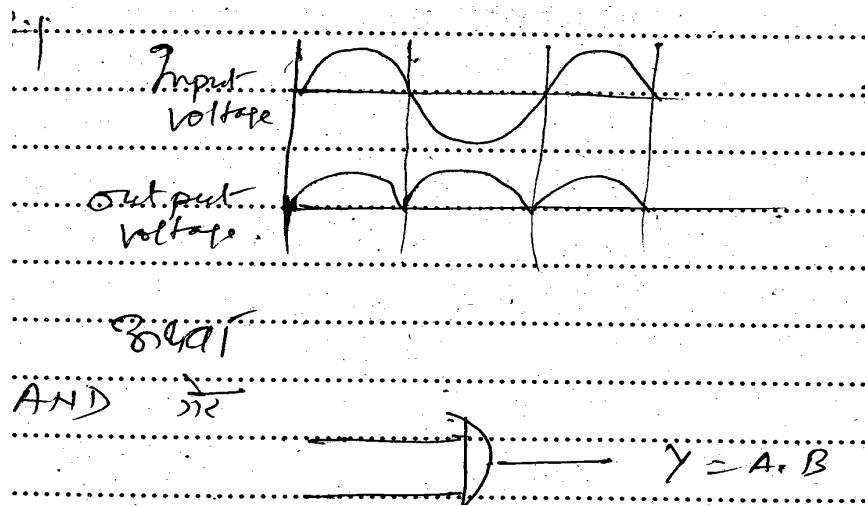 Input
voltage
output
voltage.
अथवा
AND गेट
Y = A.B